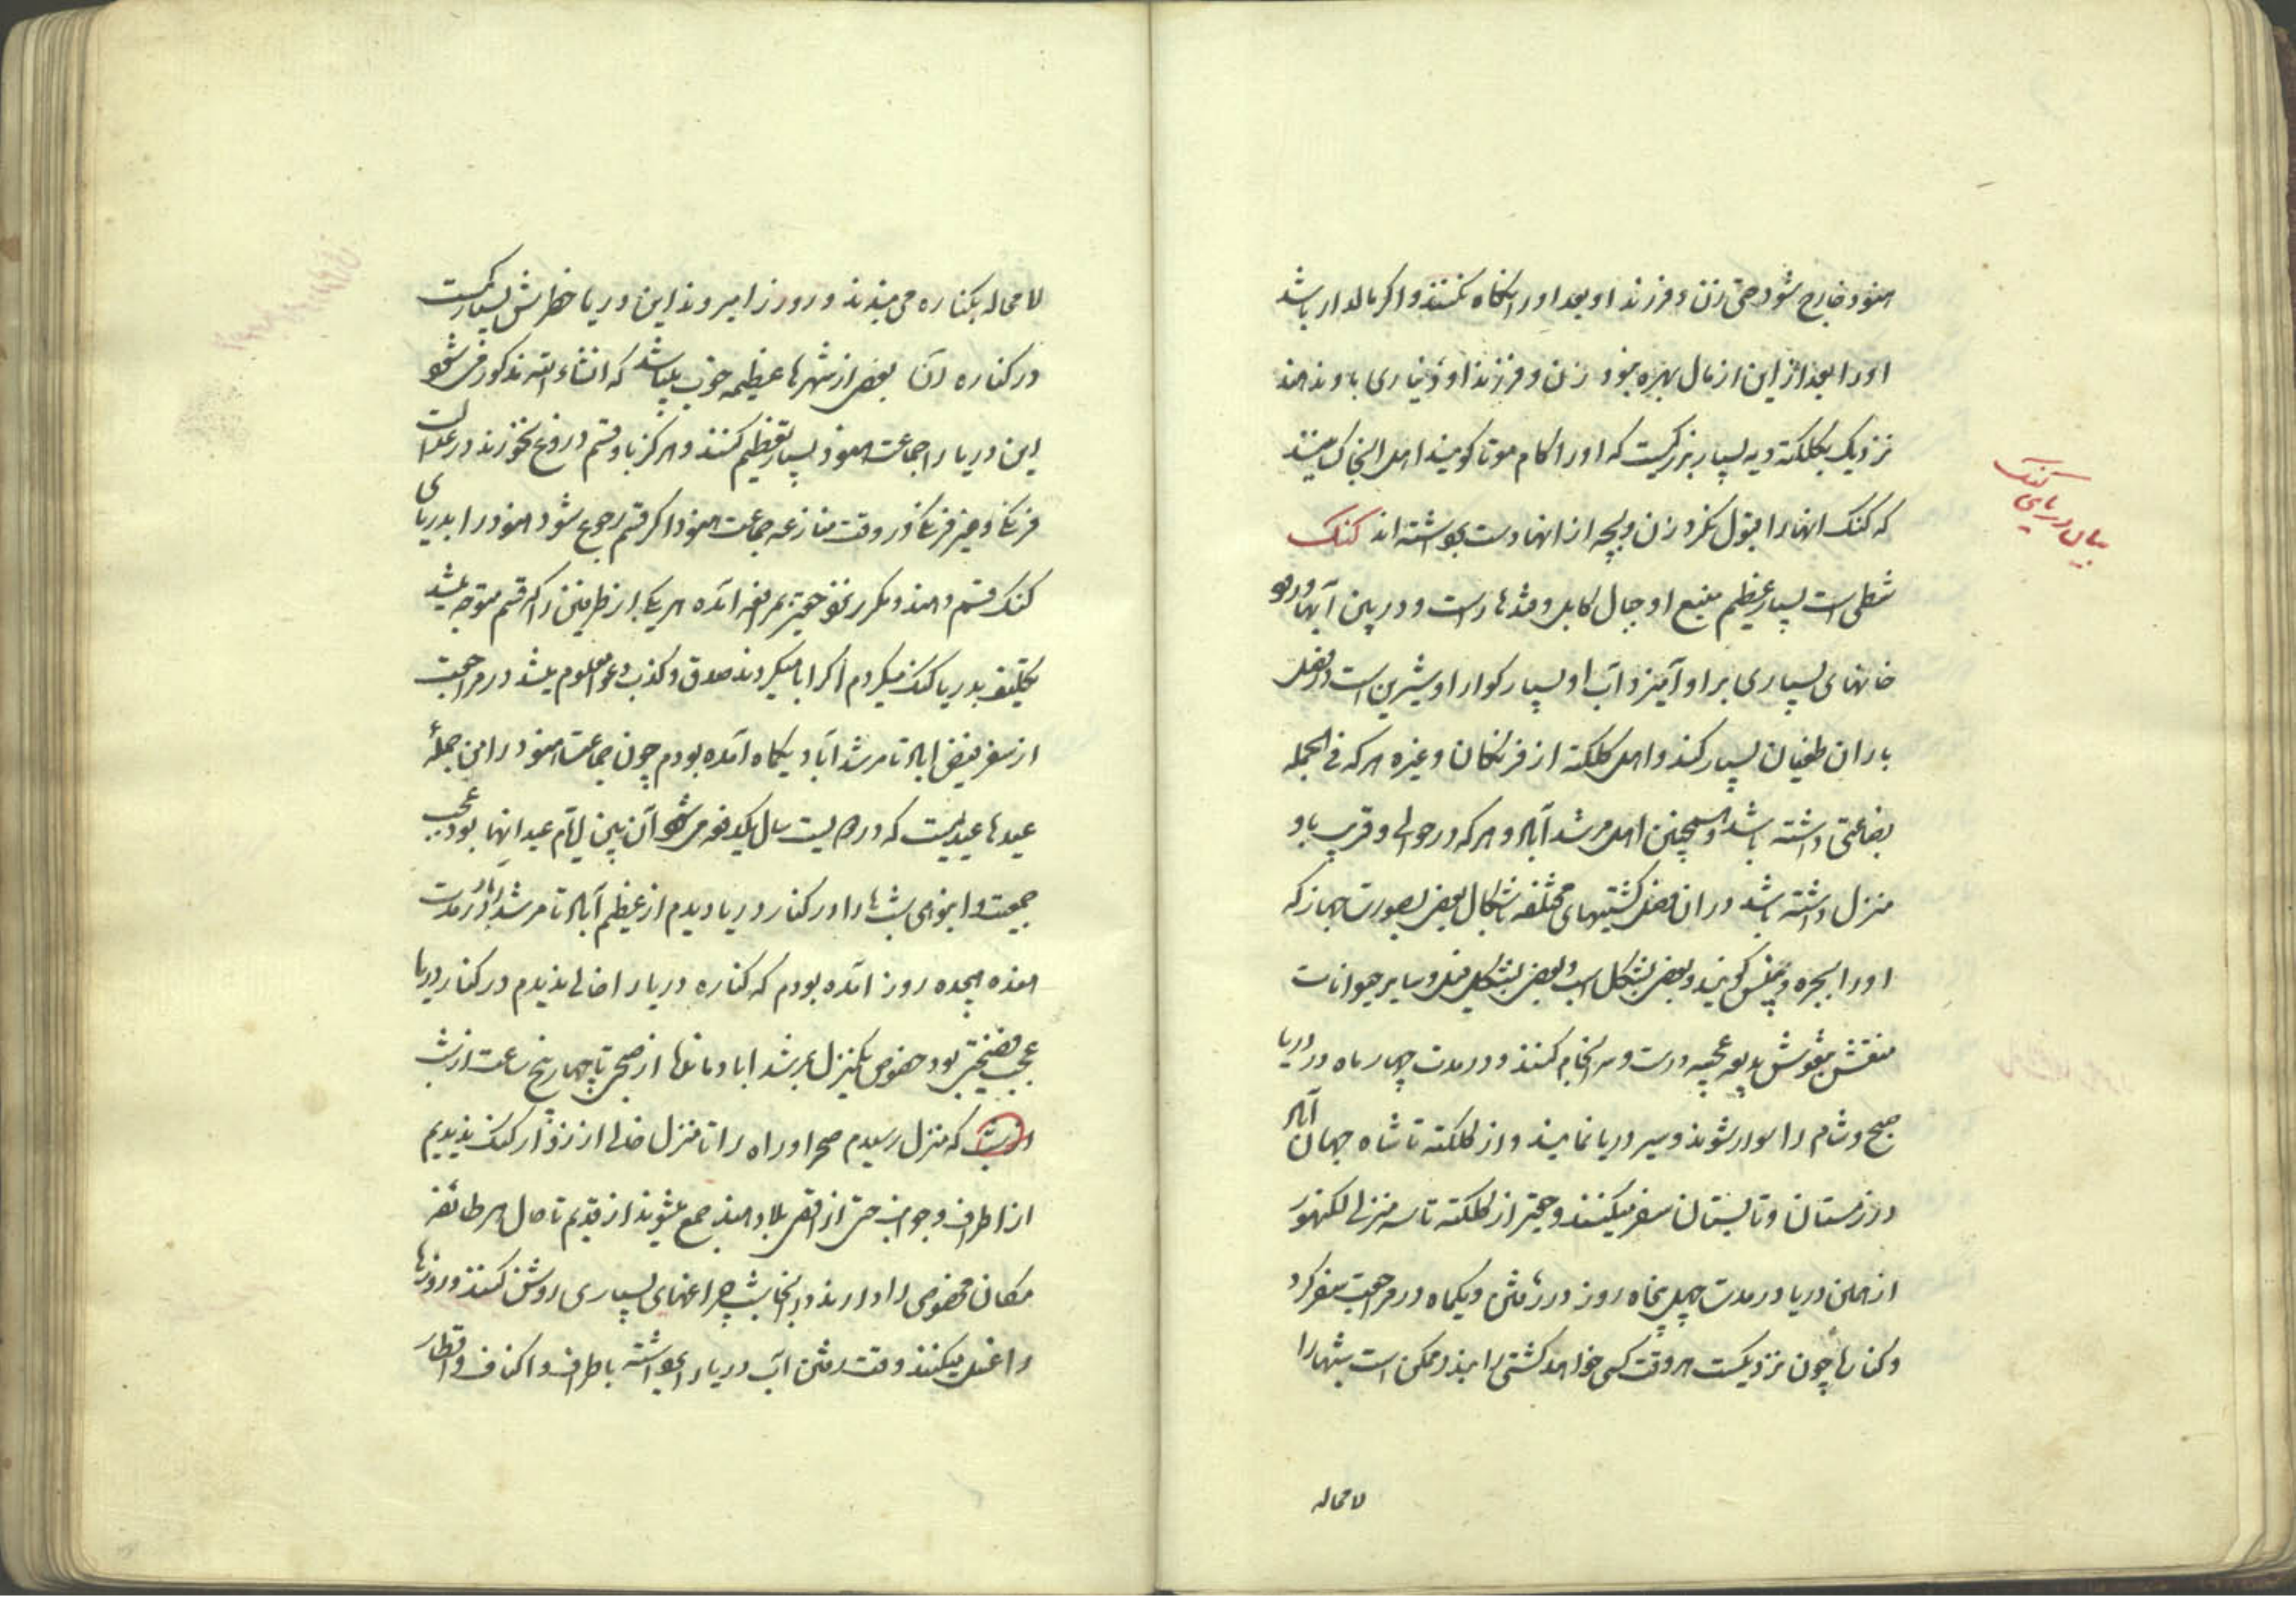 هنود خارج شود حتی زن و فرزند او بعد او را نگاه نکنند و اگر مالدار باشد
او را بعد از این از مال بهره نبود زن و فرزند او دیناری باو ندهند
نزدیک بکلکته دیه بسیار بزرگیست که او را کام موتا گویند اهل انجا کسانیند
که کنک انها را قبول نکرد زن و بچه از انها دست بر داشته‌اند کنک
بیان دریای کنک
شطی است بسیار عظیم منبع او جبال کابل و قندهار است و در بین آبها و رود
خانهای بسیاری بر او آمیزد آب او بسیار کوارا و شیرین است در فصل
باران طغیان بسیار کند و اهل کلکته از فرنکان و غیره هر که فی الجمله
بضاعتی داشته باشد و همچنین اهل مرشد آباد و هر که در حوالی و قرب باو
منزل داشته باشد در ان فصل کشتیهای مختلفه باشکال بعض بصورت جهاز که
او را بجره و پنس گویند و بعض بشکل اسب و بعض بشکل فیل و سایر حیوانات
منقش بنقوش بدیعه عجیبه درست و سر انجام کنند و در مدت چهار ماه در دریا
صبح و شام را سوار شوند و سیر دریا نمایند و از کلکته تا شاه جهان آباد
در زمستان و تابستان سفر میکنند و حقیر از کلکته تا سه منزلی لکنهور
از همین دریا در مدت چهل پنجاه روز در رفتن و یکماه در مراجعت سفر کرد
و کنارها چون نزدیکست هر وقت کسی خواهد کشتی را ببندد ممکن است شبها را
لا محاله
لا محاله بکناره می بندند و روز را میروند این دریا خطرش بسیار کمست
در کناره آن بعض از شهرها عظیمه خوب میباشد که انشاء الله مذکور می شود
این دریا را جماعت هنود بسیار تعظیم کنند و هرگز باو قسم دروغ نخورند در عدالت
فرنکان و غیر فرنکان در وقت منازعه جماعت هنود اگر قسم رجوع شود هنود را بدریای
کنک قسم دهند و مکرر نزد حقیر بمرافعه آمده هر یک از طرفین را که قسم متوجه میشد
تکلیف بدریا کنک میکردم اگر ابا میکردند صدق و کذب دعوا معلوم میشد در مراجعت
از سفر فیض اباد تا مرشد آباد یکماه آمده بودم چون جماعت هنود را من جملۀ
عیدها عیدیست که در هر بیست سال یکدفعه می شود آن سنین ایام عید انها بود عجب
جمعیت و انبوهی شبها را در کنار دریا دیدم از عظیم آباد تا مرشد اباد در مدت
هفده هیجده روز آمده بودم که کناره دریا را خالی ندیدم در کنار دریا
عجب بود خصوص یکمنزل بمرشد اباد مانده از صبح تا چهار پنج ساعت از شب
از شب که منزل رسیدم صحرا و راه را تا منزل خالی از زوار کنک ندیدیم
از اطراف و جوانب حتی از اقصی بلاد هند جمع میشوند از قدیم تا حال هر طائفه
مکان مخصوصی را دارند در انجا شب چراغهای بسیاری روشن کنند و روزها
را غسل میکنند وقت رفتن آب دریا را برداشته باطراف و اکناف و اقطار